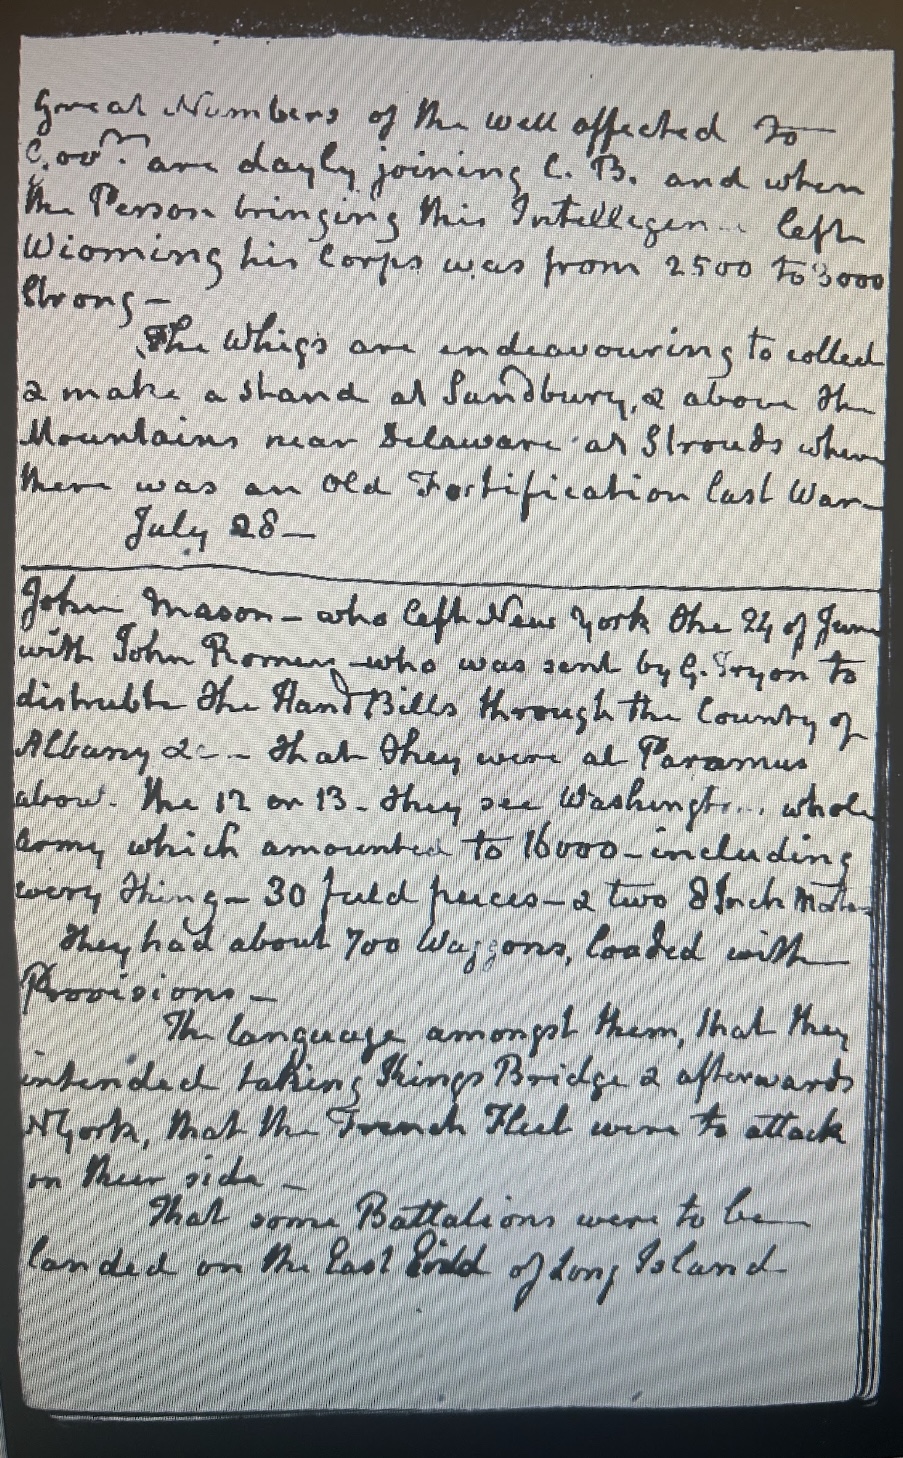 Great Numbers of the well affected to
Gov.ᵗ are dayly joining C. B. and when
the Person bringing this Intelligen... left
Wioming his Corps was from 2500 to 3000
Strong —
The Whigs are endeavouring to collect
& make a stand at Sandbury, & above the
Mountains near Delaware at Strouds where
there was an Old Fortification last War —
July 28 —
John Mason — who left New York the 24 of June
with John Romer who was sent by G. Tryon to
distrubte the Hand Bills through the County of
Albany &c — that they were at Paramus
about the 12 or 13 — they see Washingt... whole
Army which amounted to 16000 — including
every thing — 30 field peices — & two 8 Inch
They had about 700 Waggons, loaded with
Provisions —
The language amongst them, that they
intended taking Kings Bridge & afterwards
N York, that the French Fleet were to attack
on their side —
That some Battalions were to be
landed on the East End of Long Island